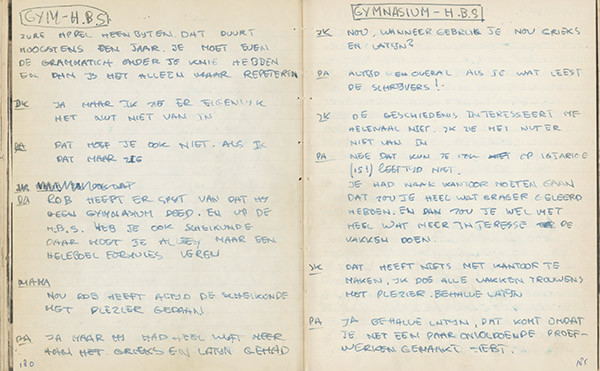 GYM - H.B.S
ZURE APPEL HEENBIJTEN. DAT DUURT
HOOGSTENS EEN JAAR. JE MOET EVEN
DE GRAMMATICA ONDER JE KNIE HEBBEN
EN DAN IS HET ALLEEN MAAR REPETEREN
IK JA MAAR IK ZIE ER EIGENLIJK
HET NUT NIET VAN IN
PA DAT HOEF JE OOK NIET. ALS IK
DAT MAAR ZIE
PA ROB HEEFT ER SPIJT VAN DAT HIJ
GEEN GYMNASIUM DEED. EN OP DE
H.B.S. HEB JE OOK SCHEIKUNDE
DAAR MOET JE ALLEEN MAAR EEN
HELEBOEL FORMULES LEREN
MAMA
NOU ROB HEEFT ALTIJD DE SCHEIKUNDE
MET PLEZIER GEDAAN
PA JA MAAR HIJ HAD HEEL WAT MEER
AAN HET GRIEKS EN LATIJN GEHAD
180
GYMNASIUM - H.B.S
IK NOU, WANNEER GEBRUIK JE NOU GRIEKS
EN LATIJN?
PA ALTIJD EN OVERAL ALS JE WAT LEEST
DE SCHRIJVERS!
IK DE GESCHIEDENIS INTERESSEERT ME
HELEMAAL NIET. IK ZIE HET NUT ER
NIET VAN IN
PA NEE DAT KUN JE OP
(15!) LEEFTIJD NIET.
JE HAD NAAR KANTOOR MOETEN GAAN
DAT ZOU JE HEEL WAT GRAGER GELEERD
HEBBEN. EN DAN ZOU JE WEL MET
HEEL WAT MEER INTERESSE DE
VAKKEN DOEN.
IK DAT HEEFT NIETS MET KANTOOR TE
MAKEN, IK DOE ALLE VAKKEN TROUWENS
MET PLEZIER. BEHALVE LATIJN
PA JA BEHALVE LATIJN, DAT KOMT OMDAT
JE NET EEN PAAR ONVOLDOENDE PROEF-
WERKEN GEMAAKT HEBT.
181